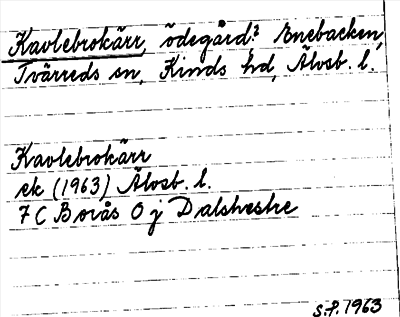 Kavlebrokärr, ödegård? Enebacken,
Tvärreds sn, Kinds hd, Älvsb. l.
Kavlebrokärr
ek (1963) Älvsb. l.
7 C Borås 0 j Dalshestre
S.P. 1963